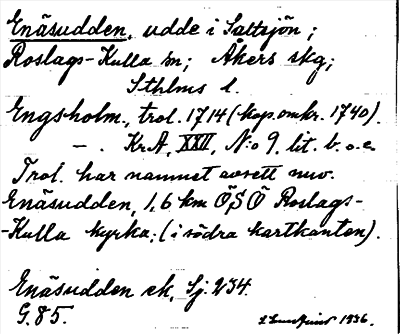 Enäsudden, udde i Saltsjön;
Roslags-Kulla sn; Åkers skg;
Sthlms l.
Engsholm, trol. 1714 (kop. omkr. 1740).
– . Kr.A, XXII, N:o 9. lit. b. o. c.
Trol. har namnet avsett nuv.
Enäsudden, 1,6 km ÖSÖ Roslags-
-Kulla kyrka; (i södra kartkanten).
Enäsudden ek. Sj. 234.
G. 85.
1936.